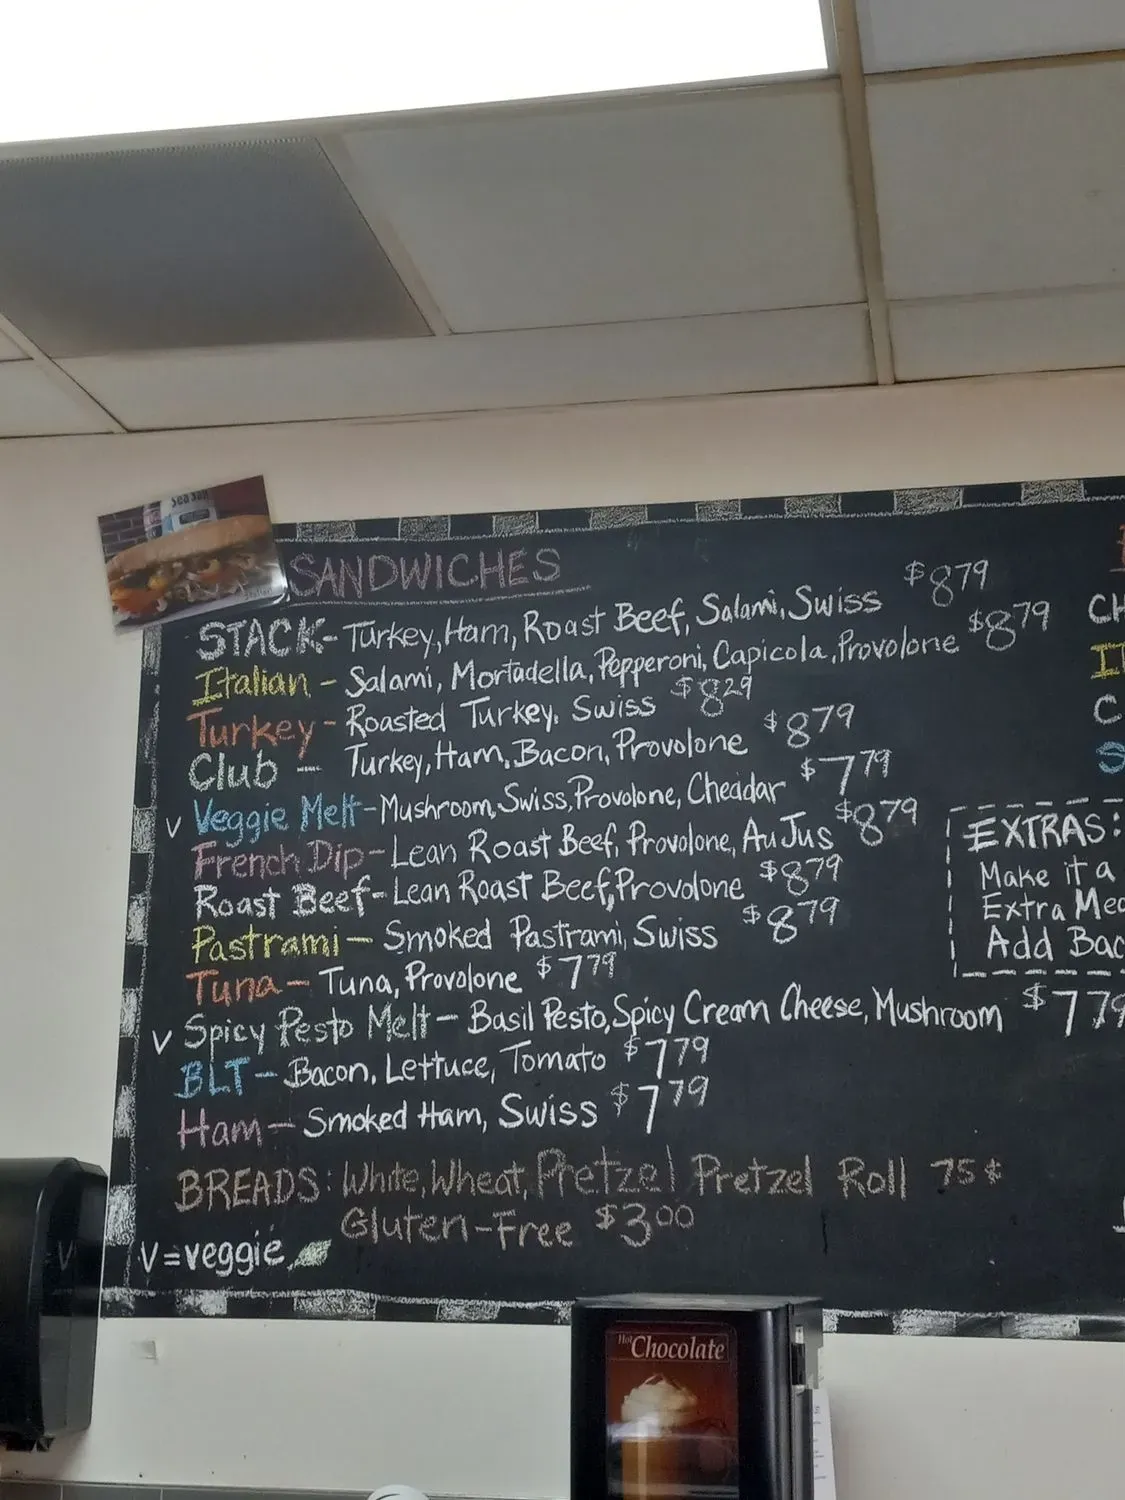 Sea Salt
SANDWICHES
STACK- Turkey, Ham, Roast Beef, Salami, Swiss $8.79
Italian - Salami, Mortadella, Pepperoni, Capicola, Provolone $8.79
Turkey - Roasted Turkey, Swiss $8.29
Club - Turkey, Ham, Bacon, Provolone $8.79
V Veggie Melt - Mushroom, Swiss, Provolone, Cheddar $7.79
French Dip - Lean Roast Beef, Provolone, Au Jus $8.79
Roast Beef - Lean Roast Beef, Provolone $8.79
Pastrami - Smoked Pastrami, Swiss $8.79
Tuna - Tuna, Provolone $7.79
V Spicy Pesto Melt - Basil Pesto, Spicy Cream Cheese, Mushroom $7.79
BLT - Bacon, Lettuce, Tomato $7.79
Ham - Smoked Ham, Swiss $7.79
BREADS: White, Wheat, Pretzel Pretzel Roll 75¢
Gluten-Free $3.00
V = veggie
EXTRAS:
Make it a
Extra Mea
Add Bac
Hot Chocolate